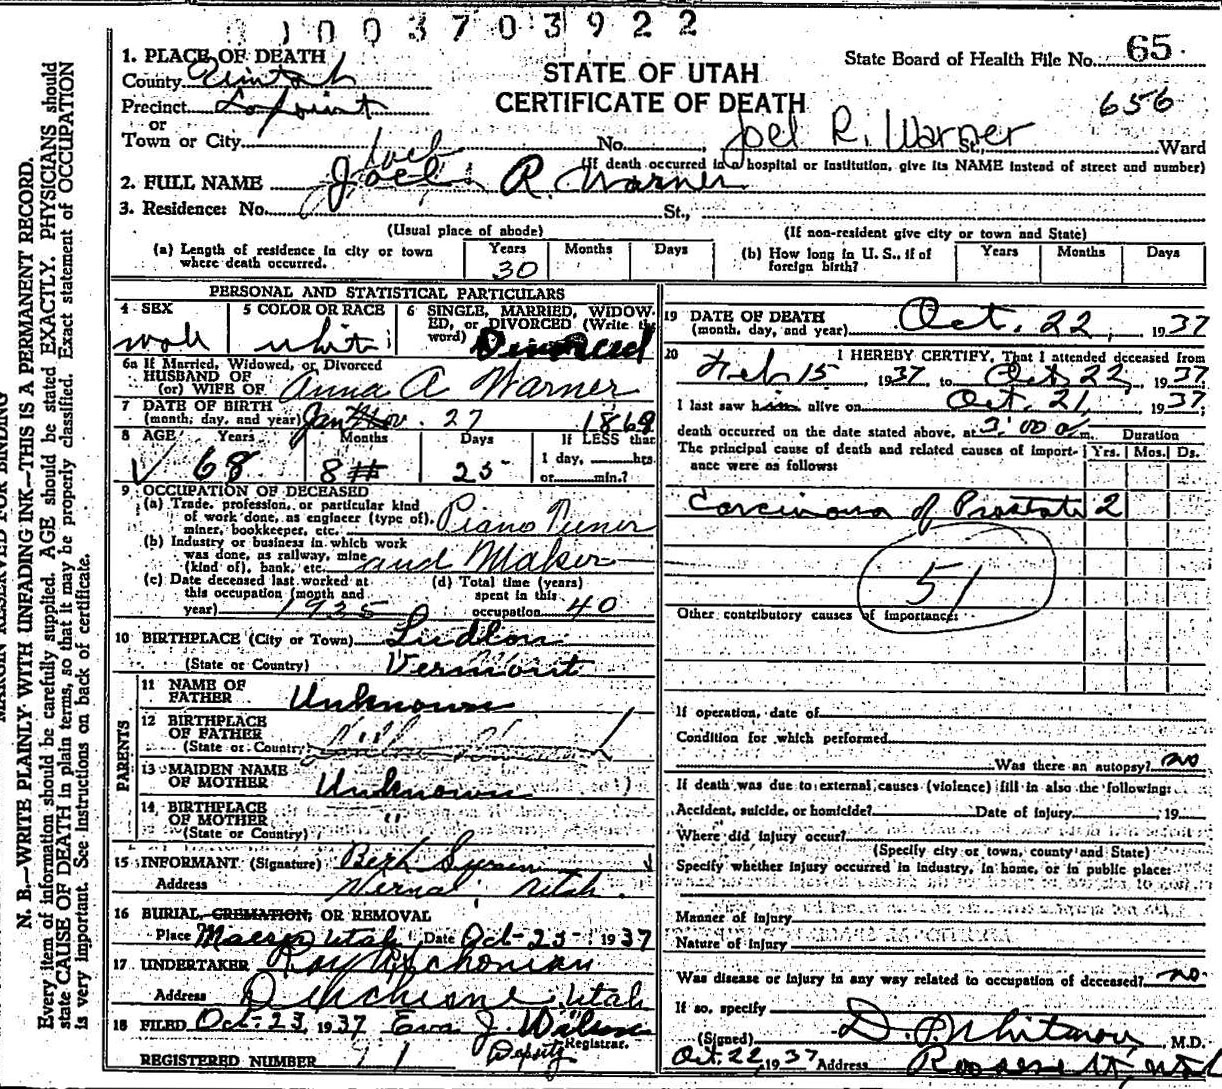 0 1 0 0 3 7 0 3 9 2 2
1. PLACE OF DEATH
County Uintah
Precinct Lapoint
or
Town or City No. St., Ward
STATE OF UTAH
CERTIFICATE OF DEATH
State Board of Health File No. 65
656
Joel R. Warner
(If death occurred in a hospital or institution, give its NAME instead of street and number)
Joel
2. FULL NAME Joel R. Warner
3. Residence: No. St.,
(Usual place of abode) (If non-resident give city or town and State)
(a) Length of residence in city or town where death occurred. Years 30 Months Days
(b) How long in U. S., if of foreign birth? Years Months Days
PERSONAL AND STATISTICAL PARTICULARS
4 SEX 5 COLOR OR RACE 6 SINGLE, MARRIED, WIDOWED, or DIVORCED (Write the word)
male white Divorced
6a If Married, Widowed, or Divorced
HUSBAND OF
(or) WIFE OF Anna A Warner
7 DATE OF BIRTH
(month, day, and year) Jan 27 1869
8 AGE Years Months Days If LESS than
68 8 25 1 day, hrs.
or min.?
9 OCCUPATION OF DECEASED
(a) Trade, profession, or particular kind
of work done, as engineer (type of),
miner, bookkeeper, etc. Piano Tuner
(b) Industry or business in which work
was done, as railway, mine
(kind of), bank, etc. and Maker
(c) Date deceased last worked at
this occupation (month and
year) 1935
(d) Total time (years)
spent in this
occupation 40
10 BIRTHPLACE (City or Town) Ludlow
(State or Country) Vermont
PARENTS
11 NAME OF
FATHER Unknown
12 BIRTHPLACE
OF FATHER
(State or Country)
13 MAIDEN NAME
OF MOTHER Unknown
14 BIRTHPLACE
OF MOTHER "
(State or Country)
15 INFORMANT (Signature)
Address Vernal, Utah.
16 BURIAL, CREMATION, OR REMOVAL
Place Maeser Utah Date Oct-25- 1937
17 UNDERTAKER Roy
Address Duchesne, Utah
18 FILED Oct-23, 1937 Eva J. Wilson
Registrar.
Deputy
REGISTERED NUMBER 71
19 DATE OF DEATH
(month, day, and year) Oct. 22, 1937
20 I HEREBY CERTIFY, That I attended deceased from
Feb 15 1937 to Oct 22, 1937
I last saw him alive on Oct. 21, 1937;
death occurred on the date stated above, at 3:00 a m. Duration
The principal cause of death and related causes of importance were as follows: Yrs. Mos. Ds.
Carcinoma of Prostate 2
51
Other contributory causes of importance:
If operation, date of
Condition for which performed
Was there an autopsy? no
If death was due to external causes (violence) fill in also the following:
Accident, suicide, or homicide? Date of injury 19
Where did injury occur?
(Specify city or town, county and State)
Specify whether injury occurred in industry, in home, or in public place:
Manner of injury
Nature of injury
Was disease or injury in any way related to occupation of deceased? no
If so, specify
(Signed) D. , M.D.
Oct. 22, 1937 Address Roosevelt, Utah
MARGIN RESERVED FOR BINDING
N. B.—WRITE PLAINLY WITH UNFADING INK—THIS IS A PERMANENT RECORD.
Every item of information should be carefully supplied. AGE should be stated EXACTLY. PHYSICIANS should
state CAUSE OF DEATH in plain terms, so that it may be properly classified. Exact statement of OCCUPATION
is very important. See instructions on back of certificate.